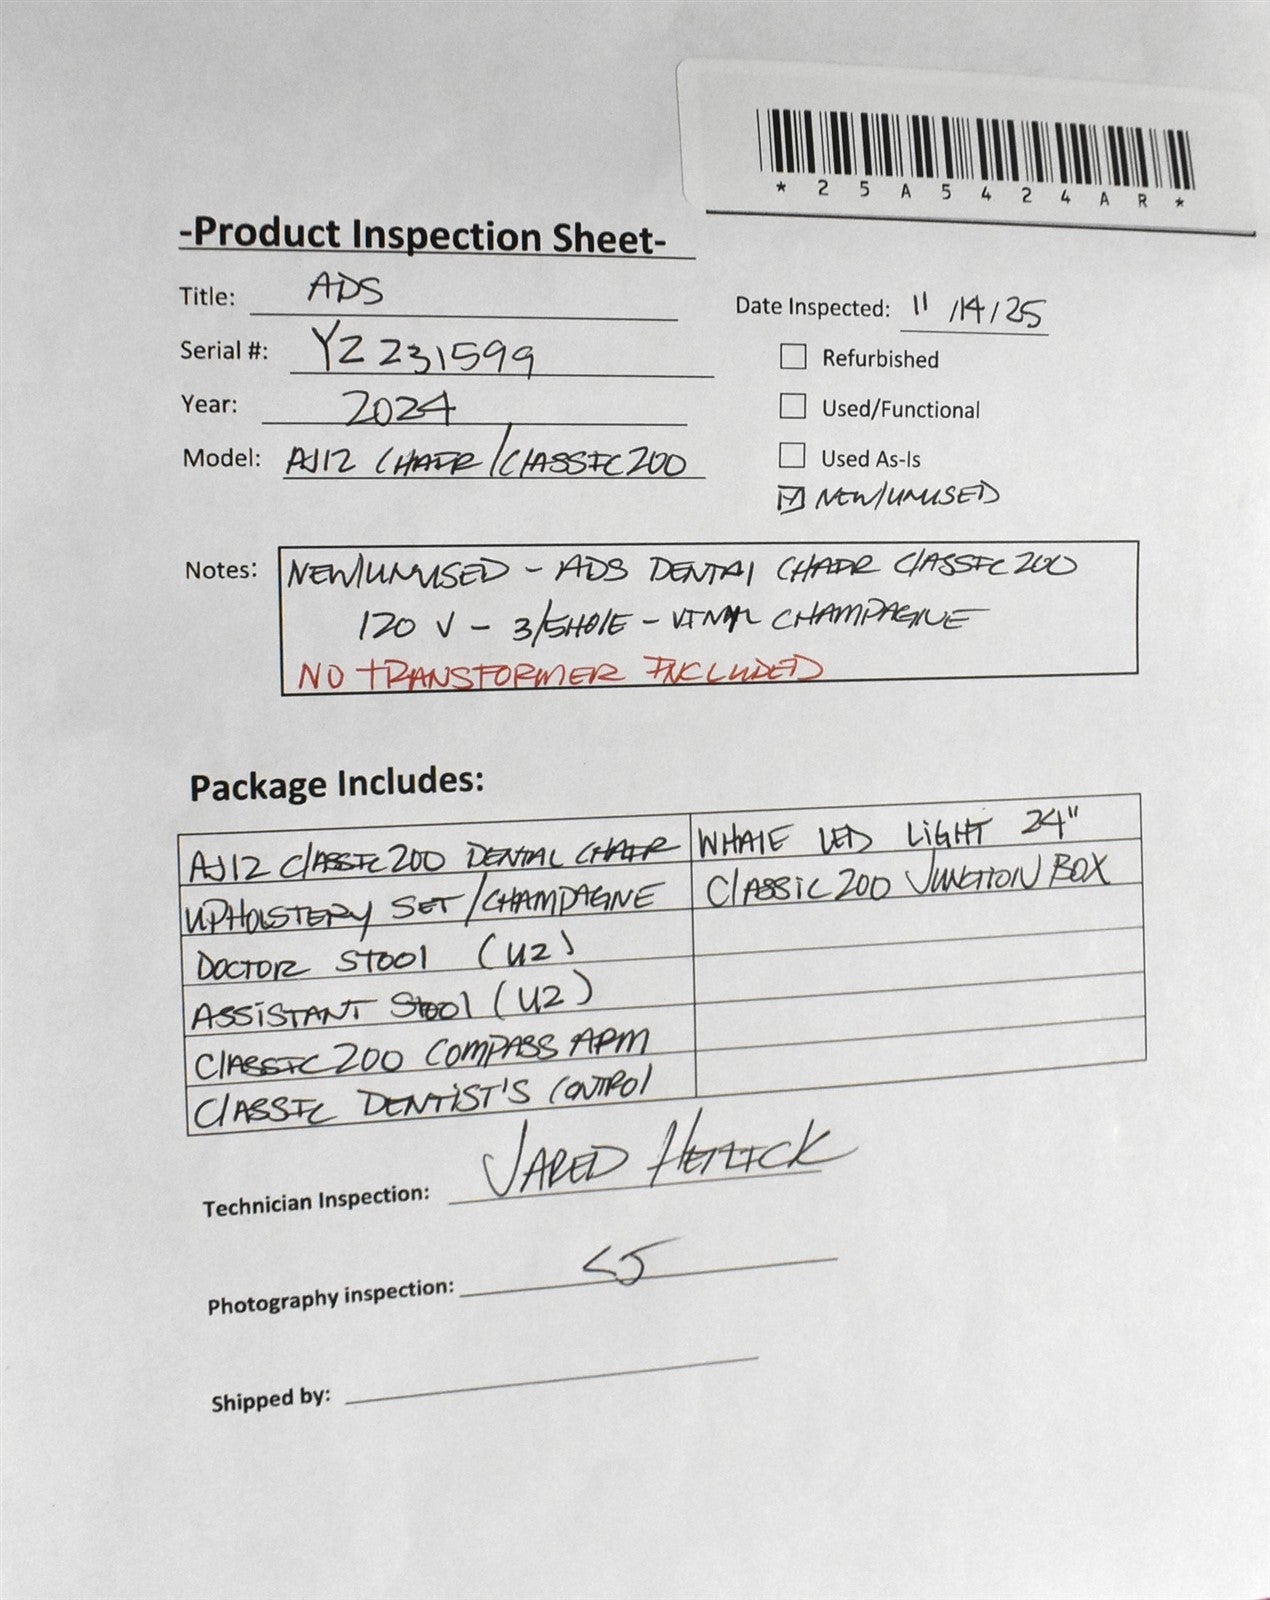 *25A5424AR*
-Product Inspection Sheet-
Title: ADS
Date Inspected: 11/14/25
Serial #: YZ231599
Refurbished
Year: 2024
Used/Functional
Model: AJ12 CHAIR/CLASSIC 200
Used As-Is
NEW/UNUSED
Notes: NEW/UNUSED - ADS DENTAL CHAIR CLASSIC 200
120 V - 3/5HOLE - VINYL CHAMPAGNE
NO TRANSFORMER INCLUDED
Package Includes:
AJ12 CLASSIC 200 DENTAL CHAIR
WHALE LED LIGHT 24"
UPHOLSTERY SET/CHAMPAGNE
CLASSIC 200 JUNCTION BOX
DOCTOR STOOL (U2)
ASSISTANT STOOL (U2)
CLASSIC 200 COMPASS ARM
CLASSIC DENTIST'S CONTROL
Technician Inspection: JARED
Photography inspection:
Shipped by: